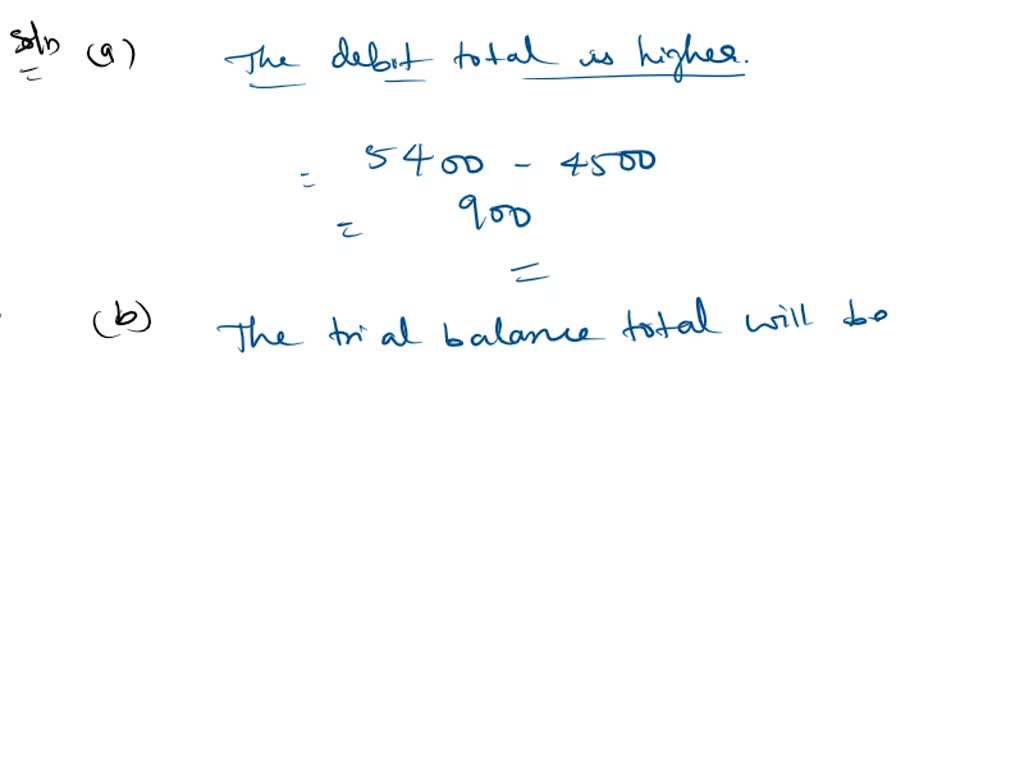 Soln (a) The debit total is higher.
= 5400 - 4500
= 900
=
(b) The trial balance total will be